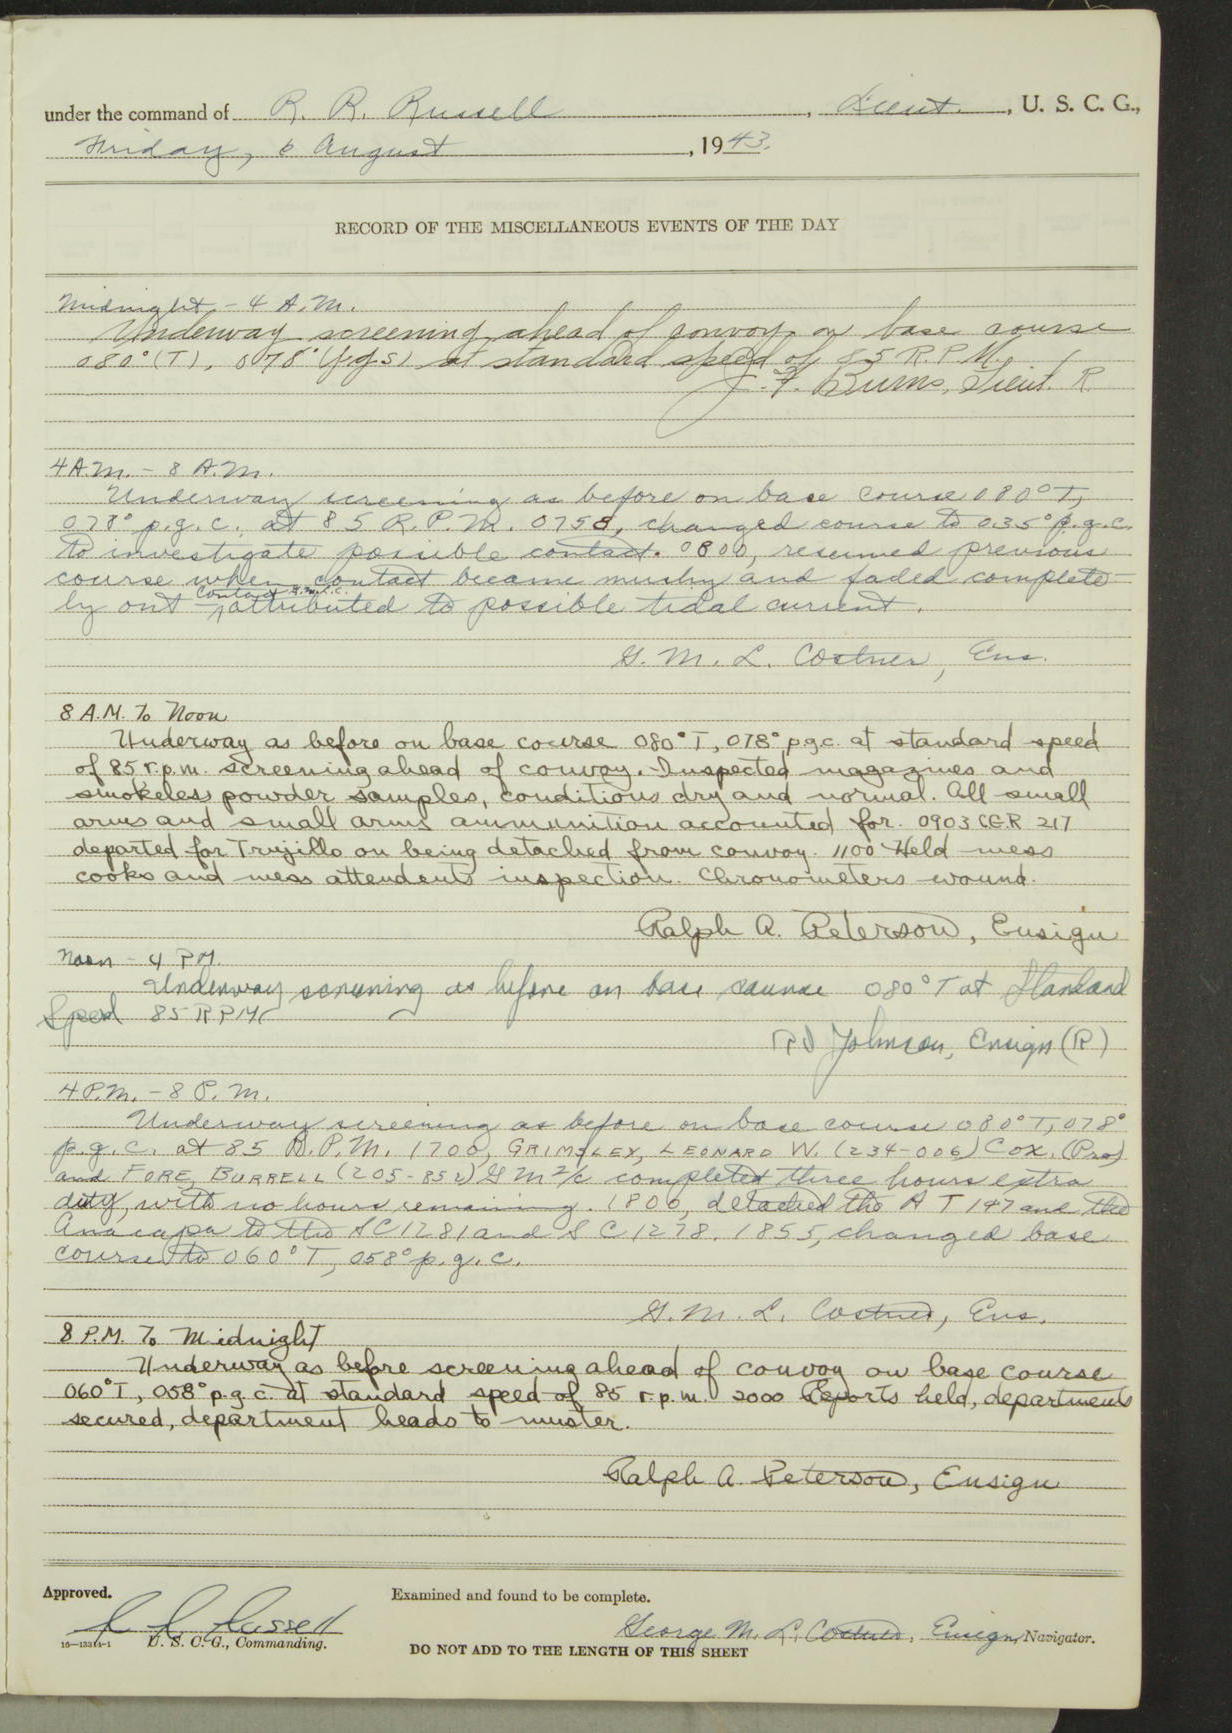 under the command of R. R. Russell, Lieut., U. S. C. G.,
Friday, 6 August, 1943.
RECORD OF THE MISCELLANEOUS EVENTS OF THE DAY
Midnight - 4 A.M.
Underway screening ahead of convoy on base course
080° (T), 078° (pgs) at standard speed of 85 R.P.M.
J. F. Burns, Lieut. R.
4 A.M. - 8 A.M.
Underway screening as before on base course 080° T,
078° p.g.c. at 85 R.P.M. 0758, changed course to 035° p.g.c.
to investigate possible contact. 0800, resumed previous
course when contact became mushy and faded complete-
ly out - contact G.M.L.C. attributed to possible tidal current.
G. M. L. Costner, Ens.
8 A.M. To Noon
Underway as before on base course 080° T, 078° p.g.c. at standard speed
of 85 r.p.m. screening ahead of convoy. Inspected magazines and
smokeless powder samples, conditions dry and normal. All small
arms and small arms ammunition accounted for. 0903 CGR 217
departed for Trujillo on being detached from convoy. 1100 Held mess
cooks and mess attendents inspection. Chronometers wound.
Ralph A. Peterson, Ensign
Noon - 4 PM.
Underway screening as before on base course 080° T at Standard
Speed 85 RPM
RJ Johnson, Ensign (R)
4 P.M. - 8 P.M.
Underway screening as before on base course 080° T, 078°
p.g.c. at 85 R.P.M. 1700, GRIMSLEY, LEONARD W. (234-006) Cox. (Prov)
and FORE, BURRELL (205-852) G M 2/c completed three hours extra
duty, with no hours remaining. 1800, detached the A T 147 and the
Anacapa to the SC 1281 and S C 1278. 1855, changed base
course to 060° T, 058° p.g.c.
G. M. L. Costner, Ens.
8 P.M. To Midnight
Underway as before screening ahead of convoy on base course
060° T, 058° p.g.c. at standard speed of 85 r.p.m. 2000 Reports held, departments
secured, department heads to muster.
Ralph A. Peterson, Ensign
Approved.
Examined and found to be complete.
R R Russell
George M. L. Costner, Ensign, Navigator.
U. S. C. G., Commanding.
DO NOT ADD TO THE LENGTH OF THIS SHEET